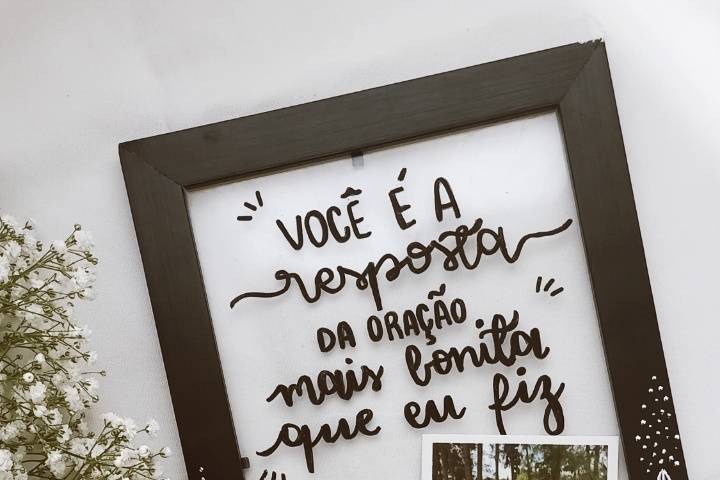 VOCÊ É A
resposta
DA ORAÇÃO
mais bonita
que eu fiz